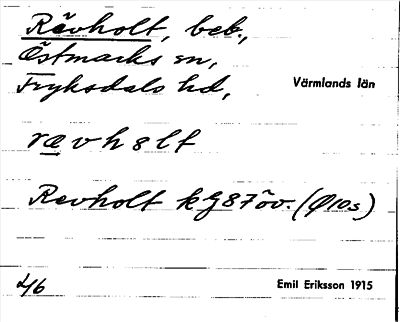 Rävholt, beb.,
Östmarks sn,
Fryksdals hd,
Värmlands län
rævhɵlt
Revholt kG87öv. (Ø10s)
4/6
Emil Eriksson 1915